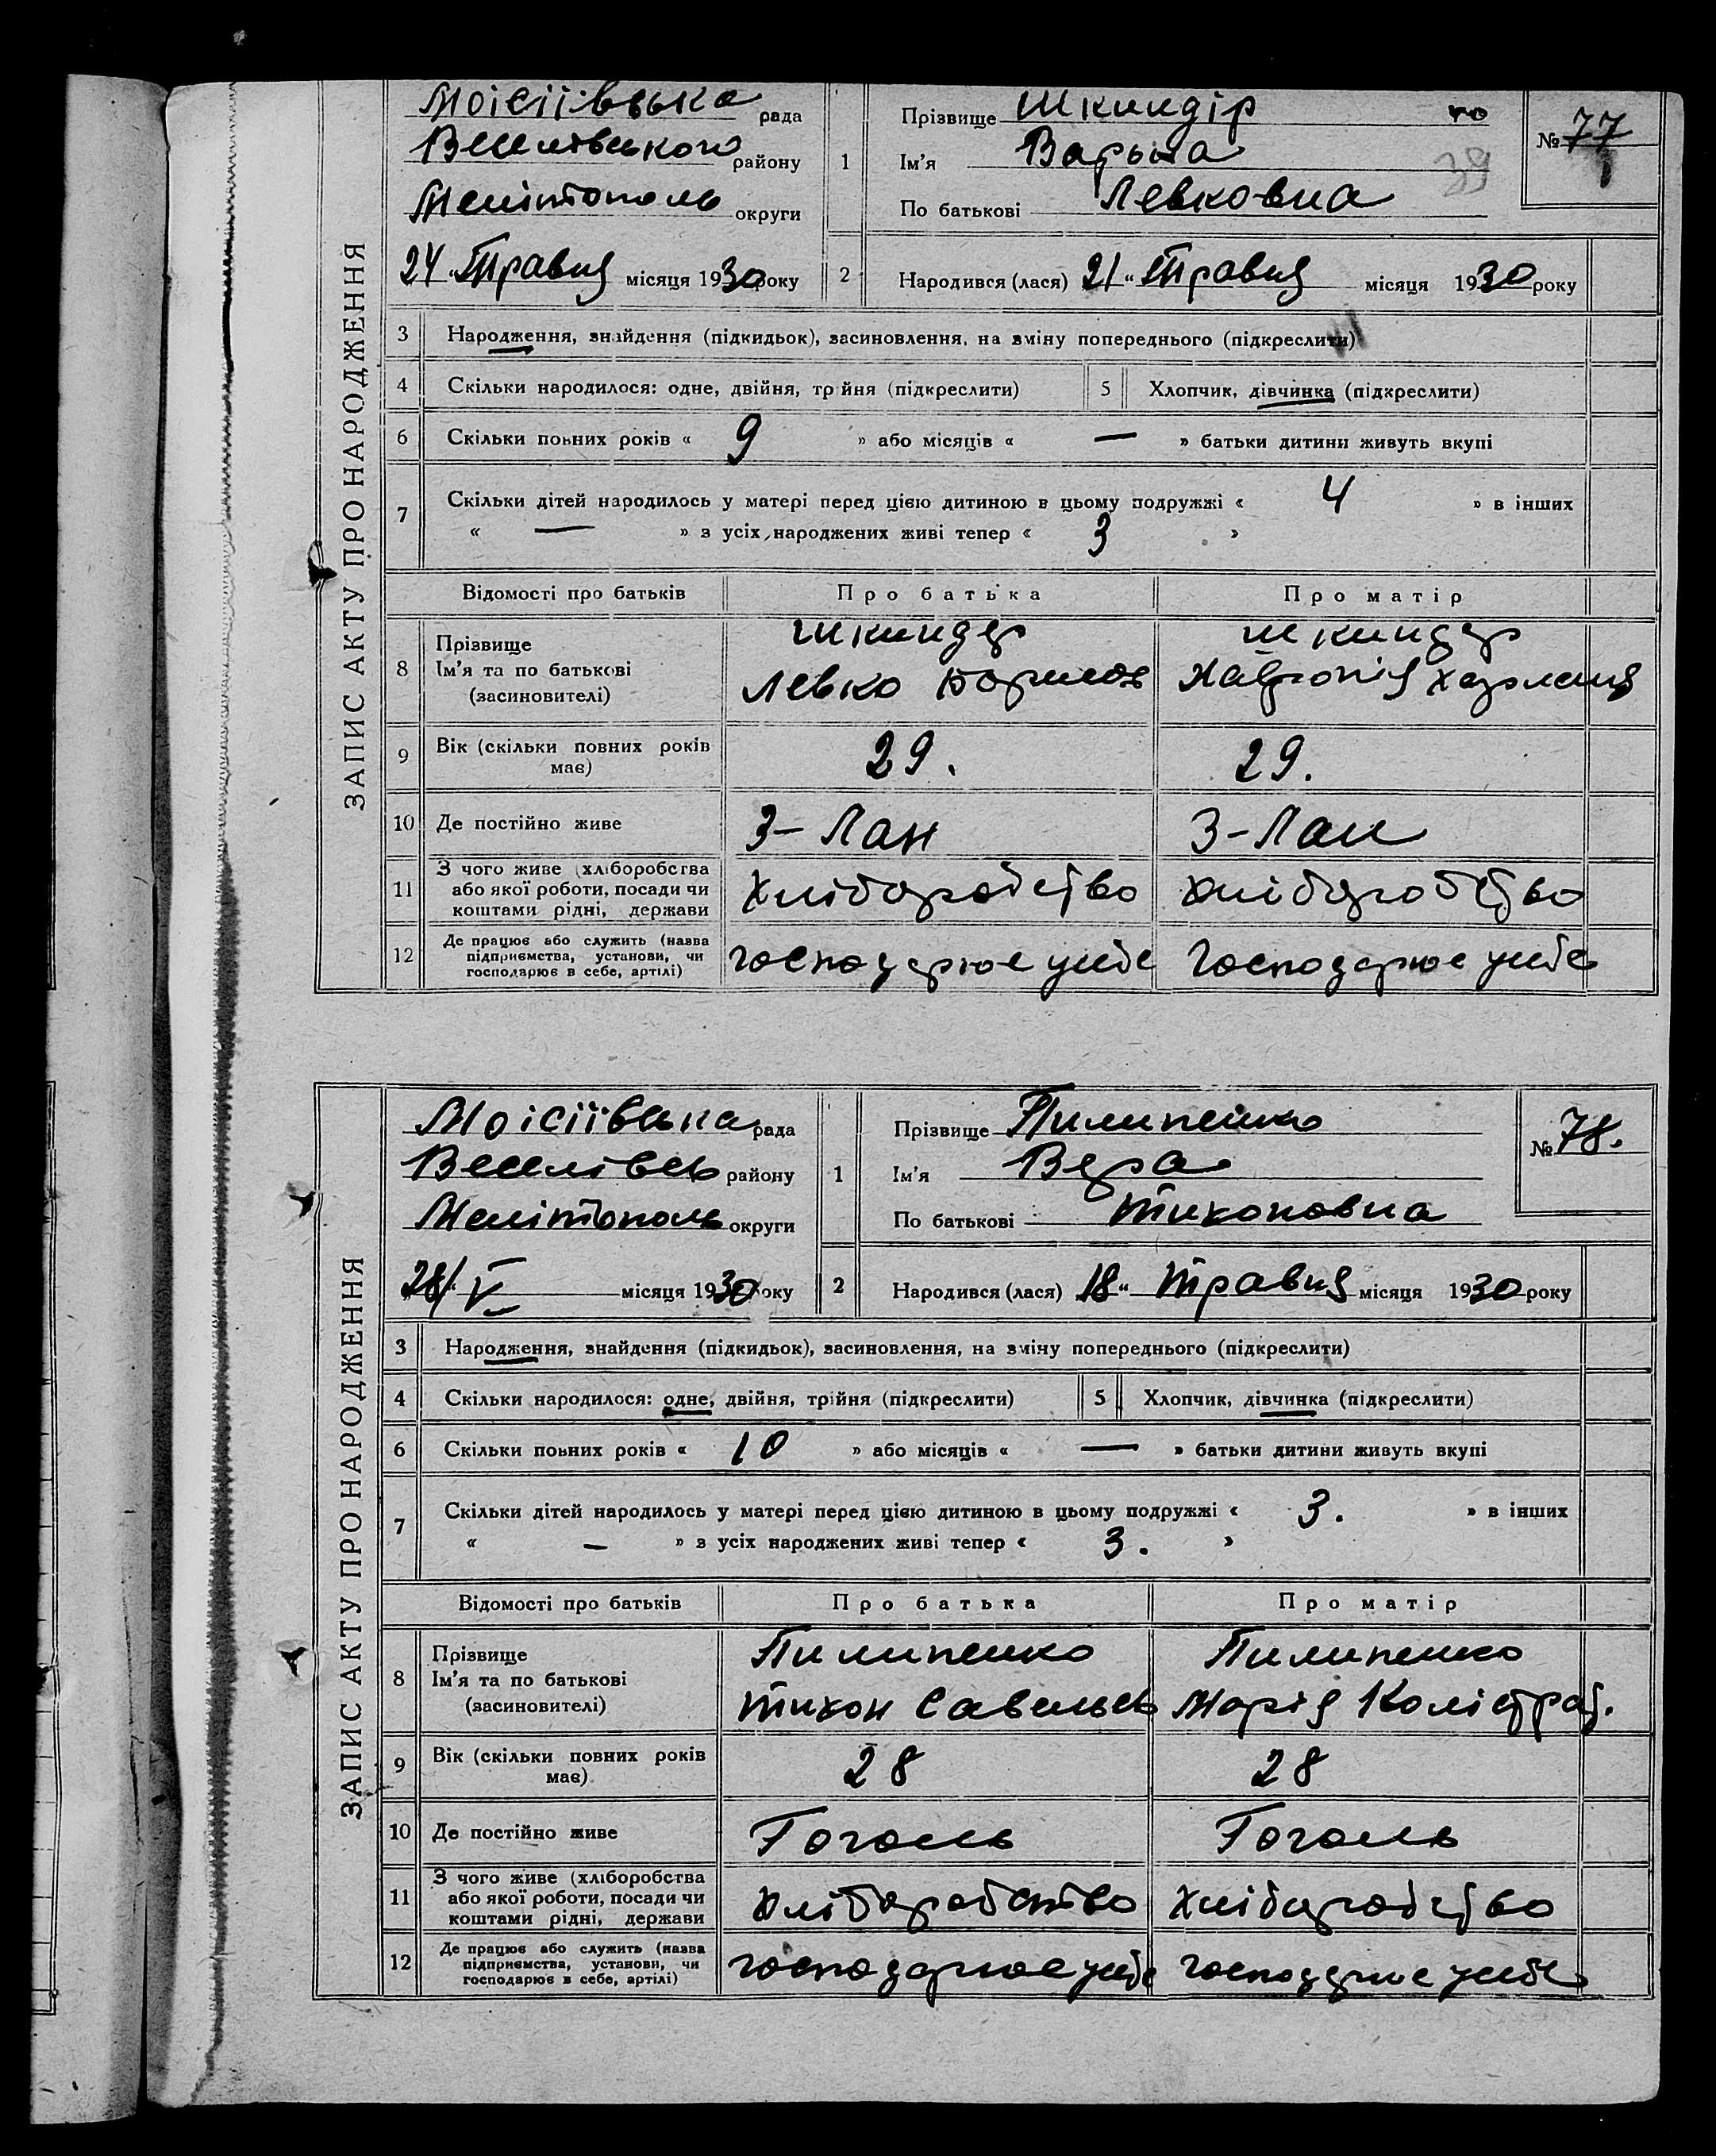 ЗАПИС АКТУ ПРО НАРОДЖЕННЯ
Моісіівська рада
Веселівського району
Мелітополь округи
24 „Травня місяця 1930 року
1 Прізвище Шкиндір
Ім'я Варька
По батькові Левковна
№ 77
2 Народився (лася) 21 „ Травня місяця 1930 року
3 Народження, знайдення (підкидьок), засиновлення, на зміну попереднього (підкреслити)
4 Скільки народилося: одне, двійня, трійня (підкреслити) 5 Хлопчик, дівчинка (підкреслити)
6 Скільки повних років « 9 » або місяців « — » батьки дитини живуть вкупі
7 Скільки дітей народилось у матері перед цією дитиною в цьому подружжі « 4 » в інших
« — » з усіх народжених живі тепер « 3 »
Відомості про батьків Про батька Про матір
8 Прізвище Шкиндер Шкиндер
Ім'я та по батькові Левко Хавронія
(засиновителі)
9 Вік (скільки повних років 29. 29.
має)
10 Де постійно живе З-Лан З-Лан
11 З чого живе (хліборобства
або якої роботи, посади чи Хліборобство Хліборобство
коштами рідні, держави
12 Де працює або служить (назва
підприємства, установи, чи господарює усебе Господарює усебе
господарює в себе, артілі)
ЗАПИС АКТУ ПРО НАРОДЖЕННЯ
Моісіївська рада
Веселівсь району
Мелітополь округи
28/V місяця 1930 року
1 Прізвище Пилипенко
Ім'я Вера
По батькові Тихоновна
№ 78.
2 Народився (лася) 18 „ Травня місяця 1930 року
3 Народження, знайдення (підкидьок), засиновлення, на зміну попереднього (підкреслити)
4 Скільки народилося: одне, двійня, трійня (підкреслити) 5 Хлопчик, дівчинка (підкреслити)
6 Скільки повних років « 10 » або місяців « — » батьки дитини живуть вкупі
7 Скільки дітей народилось у матері перед цією дитиною в цьому подружжі « 3. » в інших
« – » з усіх народжених живі тепер « 3. »
Відомості про батьків Про батька Про матір
8 Прізвище Пилипенко Пилипенко
Ім'я та по батькові Тихон Савельєв Марія Калістрат.
(засиновителі)
9 Вік (скільки повних років 28 28
має)
10 Де постійно живе Гоголь Гоголь
11 З чого живе (хліборобства
або якої роботи, посади чи Хліборобство Хліборобство
коштами рідні, держави
12 Де працює або служить (назва
підприємства, установи, чи господарює усебе господарює усебе
господарює в себе, артілі)